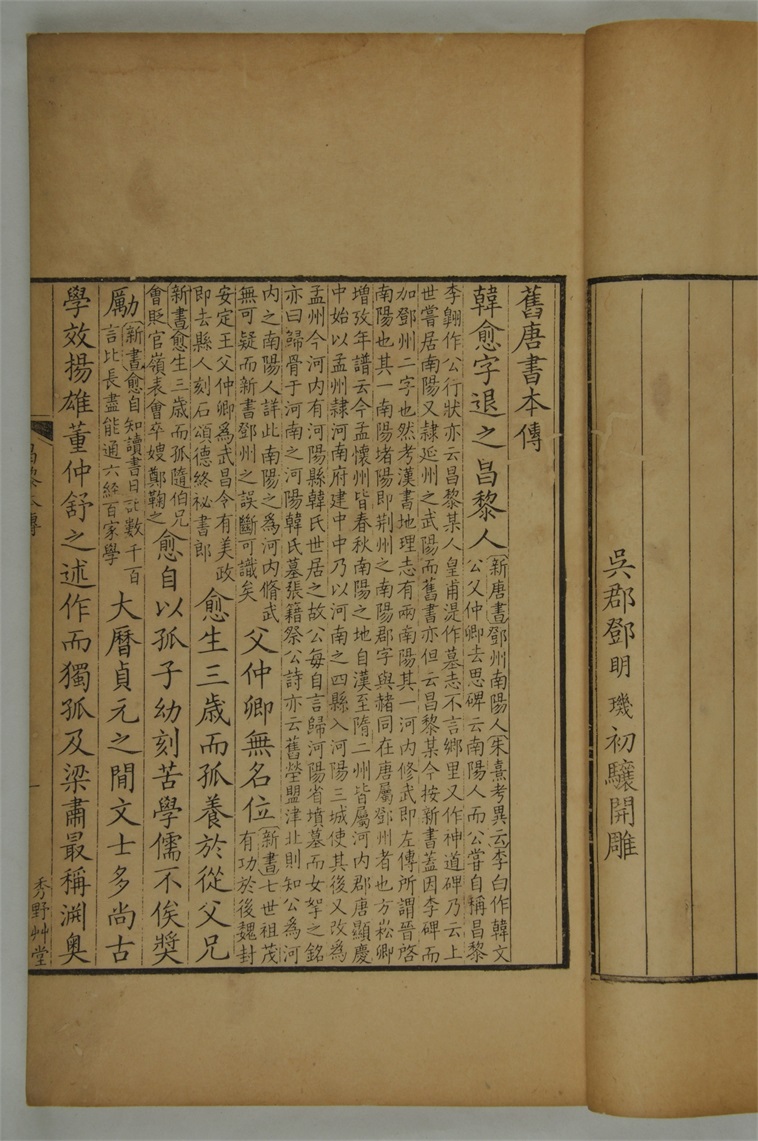 吳郡鄧明璣初驤開雕
舊唐書本傳
韓愈字退之昌黎人
新唐書鄧州南陽人朱熹考異云李白作韓文
公父仲卿去思碑云南陽人而公嘗自稱昌黎
李翺作公行狀亦云昌黎某人皇甫湜作墓志不言鄉里又作神道碑乃云上
世嘗居南陽又隸延州之武陽而舊書亦但云昌黎某今按新書蓋因李碑而
加鄧州二字也然考漢書地理志有兩南陽其一河内修武即左傳所謂晉啓
南陽也其一南陽堵陽即荆州之南陽郡字與赭同在唐屬鄧州者也方崧卿
增攷年譜云今孟懷州皆春秋南陽之地自漢至隋二州皆屬河内郡唐顯慶
中始以孟州隸河南府建中中乃以河南之四縣入河陽三城使其後又改爲
孟州今河内有河陽縣韓氏世居之故公每自言歸河陽省墳墓而女挐之銘
亦曰歸骨于河南之河陽韓氏墓張籍祭公詩亦云舊塋盟津北則知公爲河
内之南陽人詳此南陽之爲河内脩武
無可疑而新書鄧州之誤斷可識矣
父仲卿無名位
新書七世祖茂
有功於後魏封
安定王父仲卿爲武昌令有美政
即去縣人刻石頌德終祕書郎
愈生三歲而孤養於從父兄
新書愈生三歲而孤隨伯兄
會貶官嶺表會卒嫂鄭鞠之
愈自以孤子幼刻苦學儒不俟奬
勵
新書愈自知讀書日記數千百
言比長盡能通六經百家學
大曆貞元之間文士多尚古
學效揚雄董仲舒之述作而獨孤及梁肅最稱淵奥
昌黎本傳
一
秀野艸堂